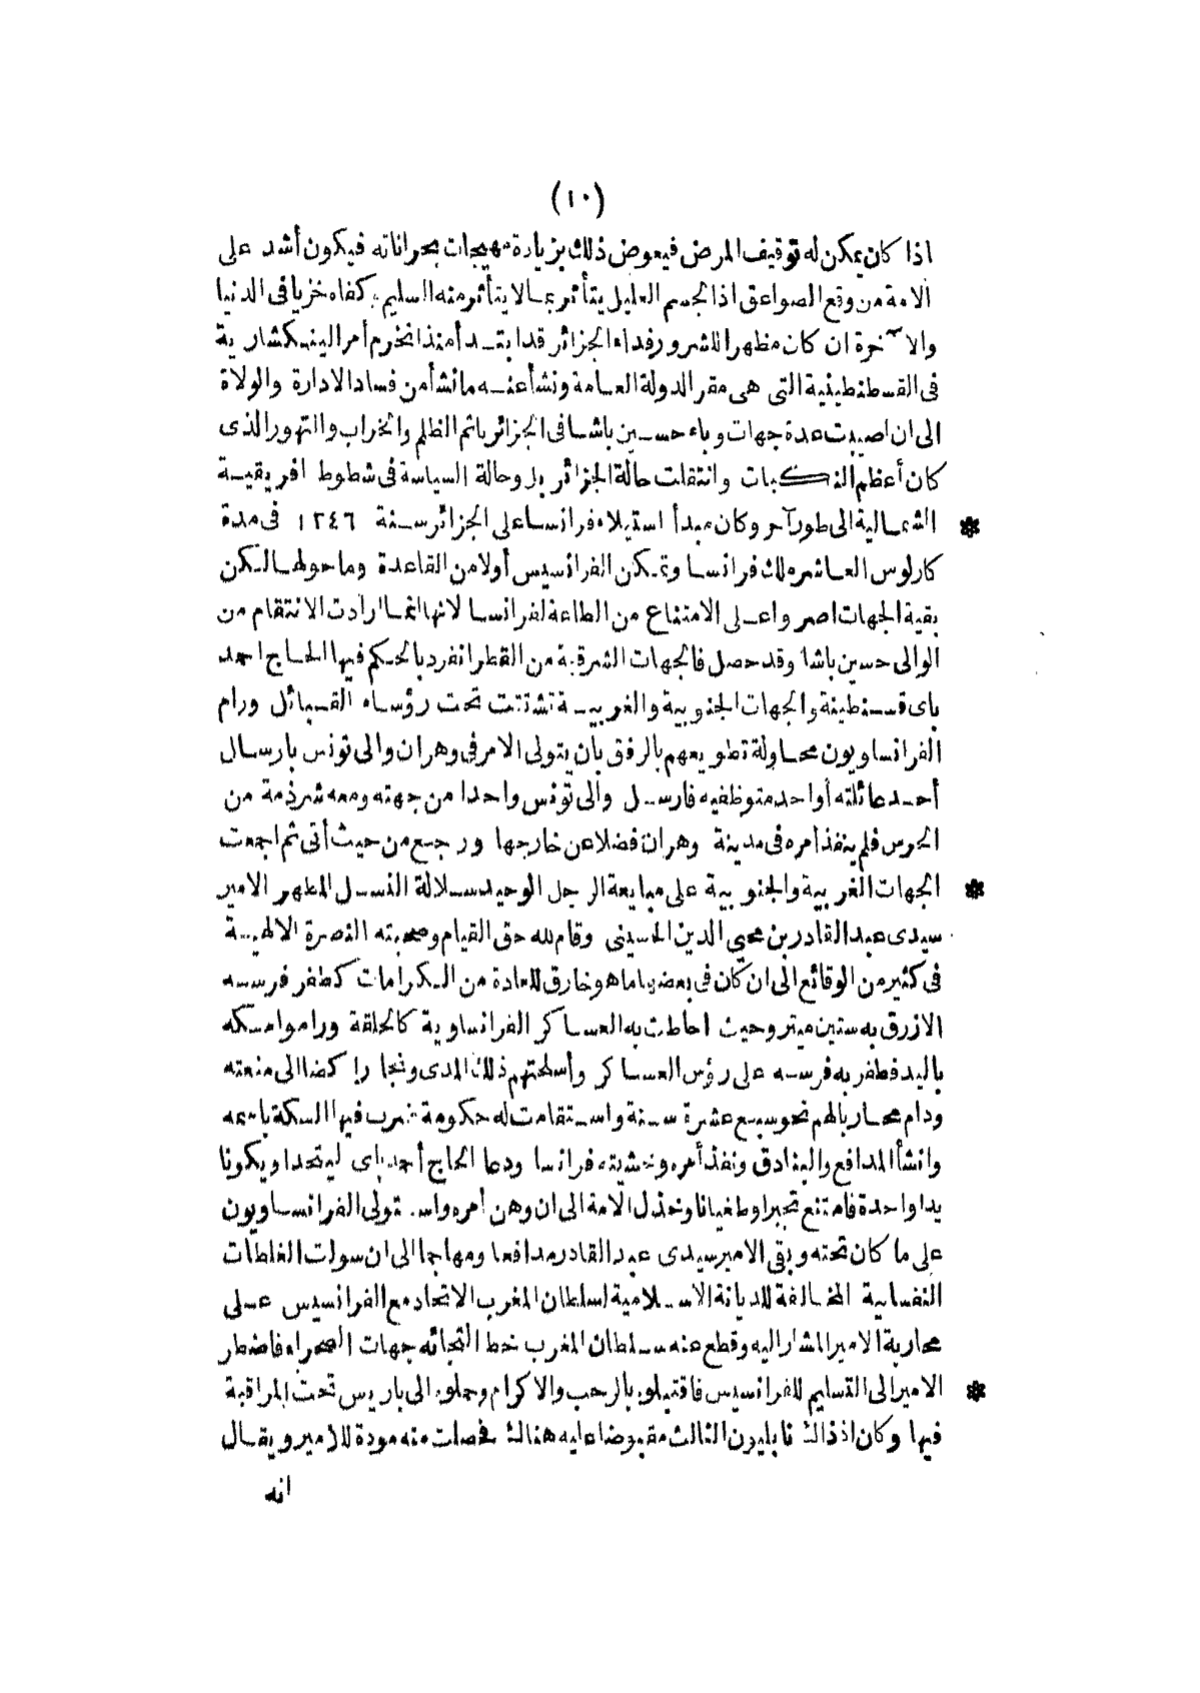 (١٠)
اذا كان يمكن له توقيف المرض فيعوض ذلك بزيادة مهيجات بحراناته فيكون أشد على
الامة من وقع الصواعق اذ الجسم العليل يتأثر بما لا يتأثر منه السليم وكفاه خزيا فى الدنيا
والآخرة ان كان مظهرا للشرور فداء الجزائر قد ابتدأ منذ انخرم أمر الينكشارية
فى القسطنطينية التى هى مقر الدولة العامة ونشأ عنه ما نشأ من فساد الادارة والولاة
الى ان اصيبت عدة جهات وباء حسين باشا فى الجزائر باثم الظلم والخراب والتهور الذى
كان أعظم النكبات وانتقلت حالة الجزائر بل وحالة السياسة فى شطوط افريقية
* الشمالية الى طور آخر وكان مبدأ استيلاء فرانسا على الجزائر سنة ١٢٤٦ فى مدة
كارلوس العاشر ملك فرانسا وتمكن الفرانسيس أولا من القاعدة وما حولها لكن
بقية الجهات اصروا على الامتناع من الطاعة لفرانسا لانها انما ارادت الانتقام من
الوالى حسين باشا وقد حصل فالجهات الشرقية من القطر انفرد بالحكم فيها الحاج احمد
باى قسنطينة والجهات الجنوبية والغربية تشتتت تحت رؤساء القبائل ورام
الفرانساويون محاولة تطويعهم بالرفق بأن يتولى الامر فى وهران والى تونس بارسال
أحد عائلته أو احد متوظفيه فارسل والى تونس واحدا من جهته ومعه شرذمة من
الحرس فلم ينفذ امره فى مدينة وهران فضلا عن خارجها ورجع من حيث أتى ثم اجمعت
* الجهات الغربية والجنوبية على مبايعة الرجل الوحيد سلالة النسل المطهر الامير
سيدى عبد القادر بن محيى الدين الحسينى وقام لله حق القيام وصحبته النصرة الالهية
فى كثير من الوقائع الى ان كان فى بعضها ما هو خارق للعادة من الكرامات كطفر فرسه
الازرق به ستين ميتر وحيث احاطت به العساكر الفرانساوية كالحلقة وراموا مسكه
باليد فطفر به فرسه على رؤس العساكر وأسلحتهم ذلك المدى ونجا راكضا الى منعته
ودام محاربا لهم نحو سبع عشرة سنة واستقامت له حكومة ضرب فيها السكة باسمه
وانشأ المدافع والبنادق ونفذ أمره وخشيته فرانسا ودعا الحاج أحمد باى ليتحدا ويكونا
يدا واحدة فامتنع تجبرا وطغيانا وخذل الامة الى ان وهن أمره واستولى الفرانساويون
على ما كان تحته وبقى الامير سيدى عبد القادر مدافعا ومهاجما الى ان سولت الغلطات
النفسانية المخالفة للديانة الاسلامية لسلطان المغرب الاتحاد مع الفرانسيس على
محاربة الامير المشار اليه وقطع عنه سلطان المغرب خط التجائه جهات الصحراء فاضطر
* الامير الى التسليم للفرانسيس فاقتبلوه بالرحب والاكرام وحملوه الى باريس تحت المراقبة
فيها وكان اذ ذاك نابليون الثالث مقبوضا عليه هنالك فحصلت منه مودة للامير ويقال
انه